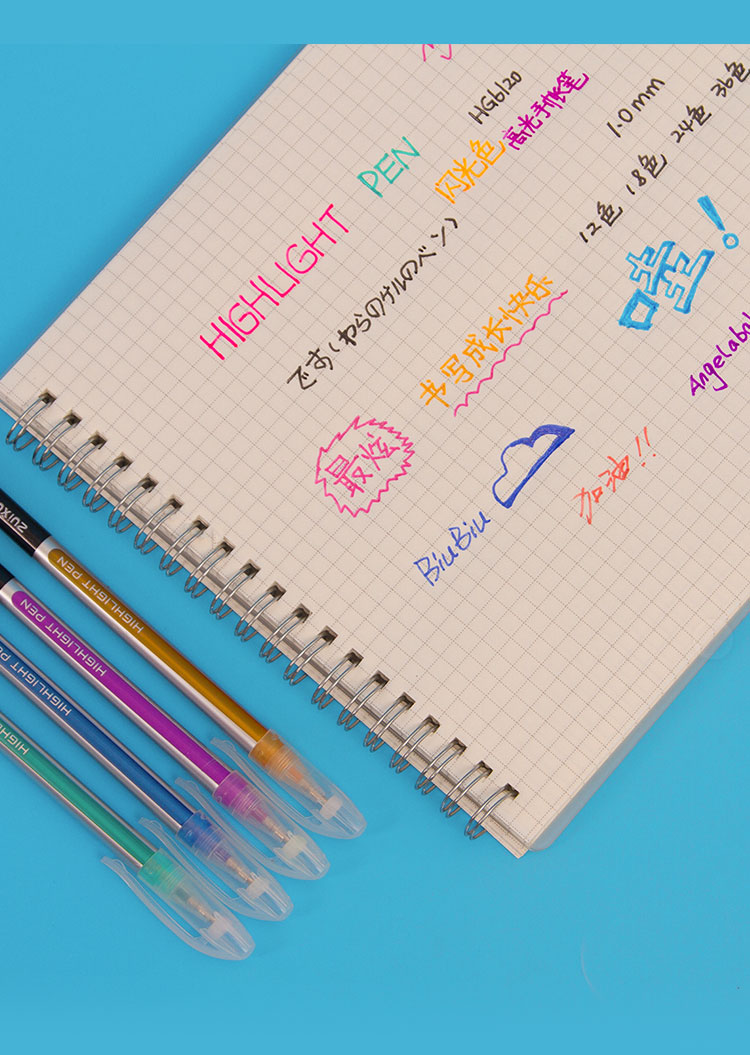 HG6120
1.0mm
12色 18色 24色 36色
闪光色 高光手帐笔
HIGHLIGHT PEN
哇!
です(わらのゲルのペン)
书写成长快乐
最炫
BiuBiu
加油!!
HIGHLIGHT PEN
HIGHLIGHT PEN